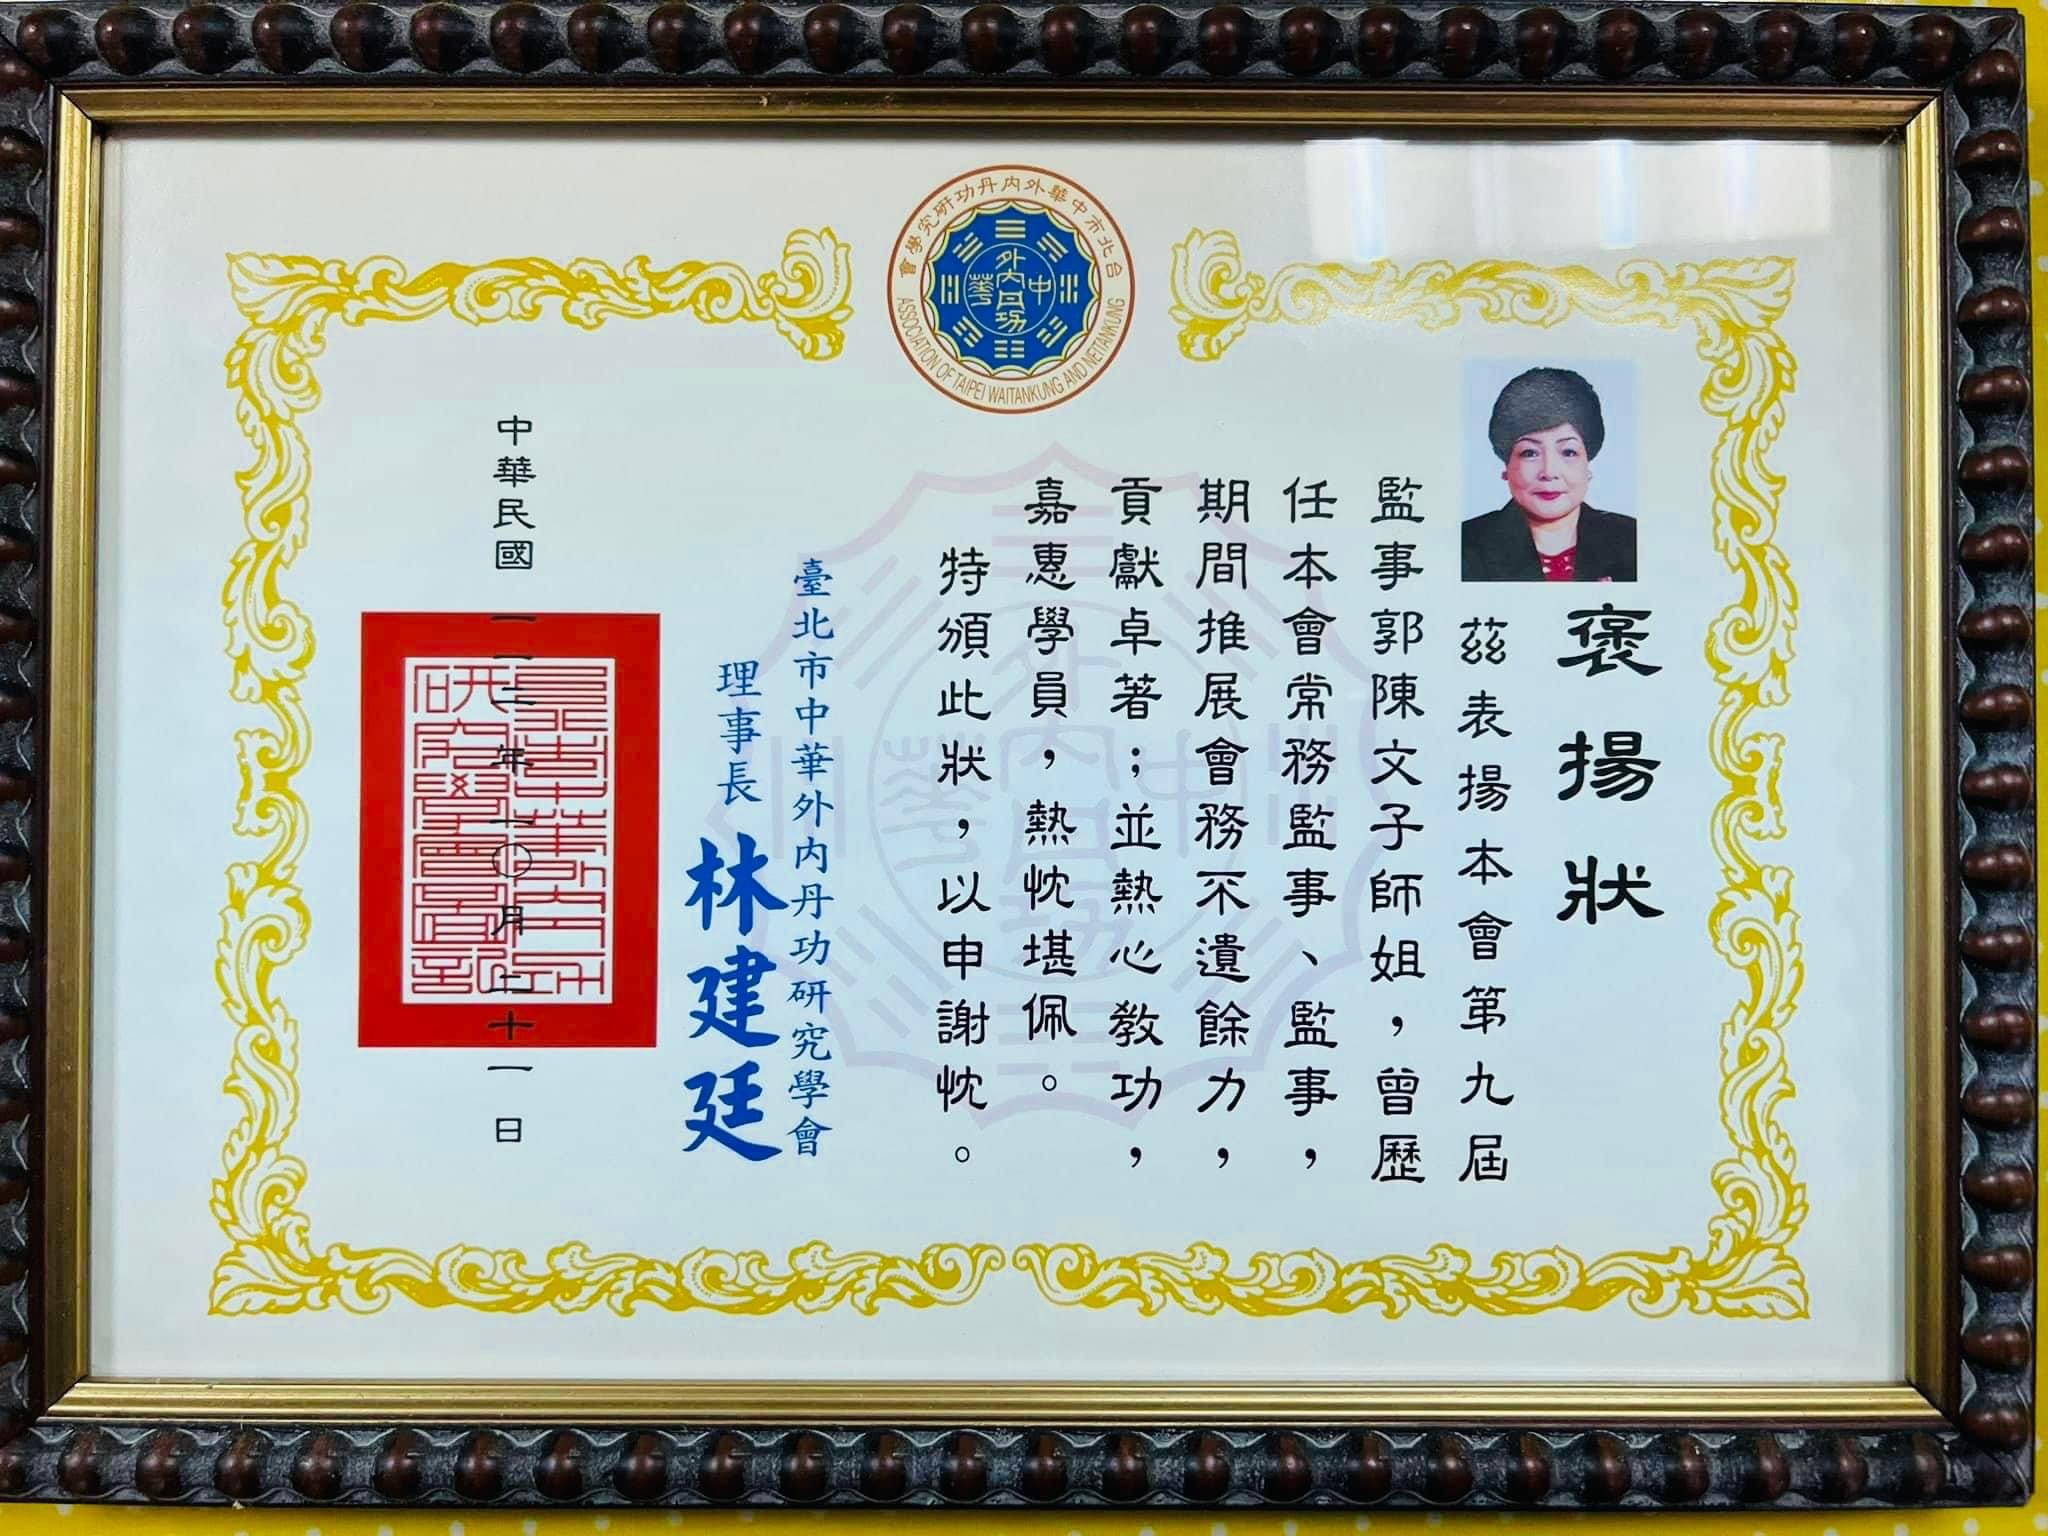 台北市中華外內丹功研究學會
ASSOCIATION OF TAIPEI WAITANKUNG AND NEITANKUNG
中華外內丹功
褒揚狀
茲表揚本會第九屆
監事郭陳文子師姐，曾歷
任本會常務監事、監事，
期間推展會務不遺餘力，
貢獻卓著；並熱心教功，
嘉惠學員，熱忱堪佩。
特頒此狀，以申謝忱。
臺北市中華外內丹功研究學會
理事長 林建廷
中華民國一一二年一〇月二十一日